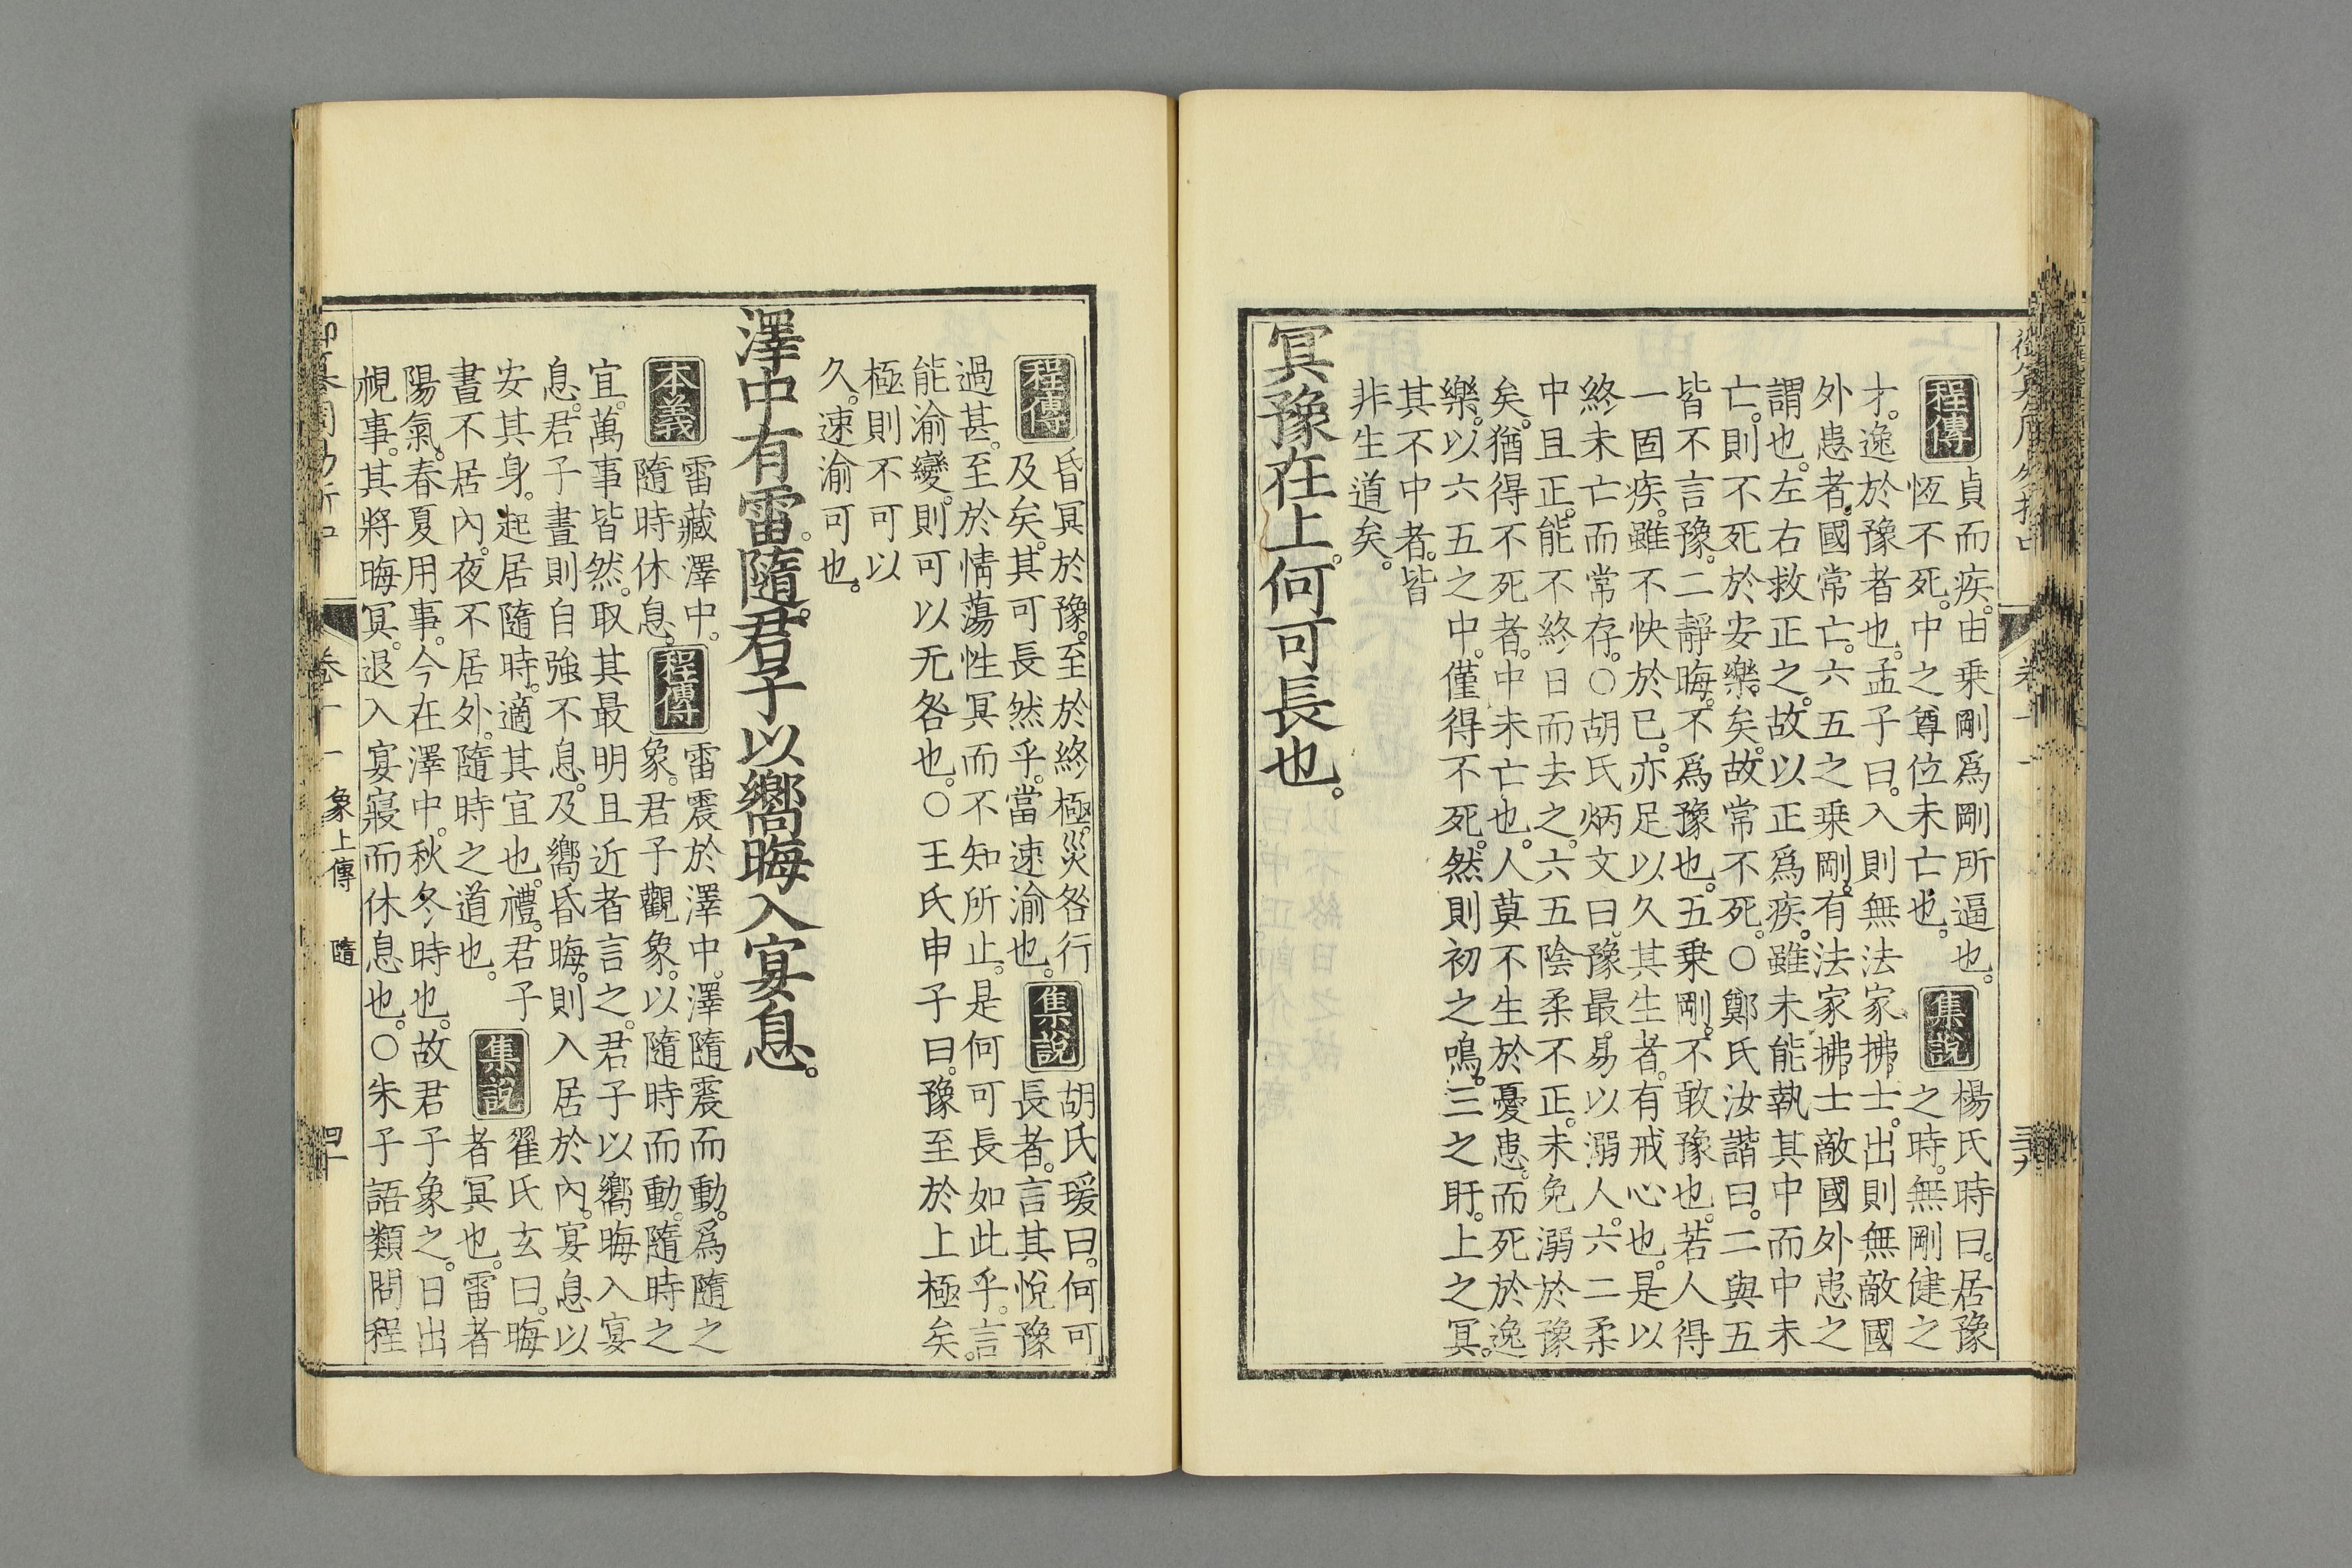 程傳
貞而疾。由乗剛爲剛所逼也。
恆不死。中之尊位未亡也。
集說
楊氏時曰。居豫
之時。無剛健之
才。逸於豫者也。孟子曰。入則無法家拂士。出則無敵國
外患者。國常亡。六五之乗剛。有法家拂士敵國外患之
謂也。左右救正之。故以正爲疾。雖未能執其中而中未
亡。則不死於安樂矣。故常不死。〇鄭氏汝諧曰。二與五
皆不言豫。二靜晦。不爲豫也。五乗剛。不敢豫也。若人得
一固疾。雖不快於已。亦足以久其生者。有戒心也。是以
終未亡而常存。〇胡氏炳文曰。豫最易以溺人。六二柔
中且正。能不終日而去之。六五陰柔不正。未免溺於豫
矣。猶得不死者。中未亡也。人莫不生於憂患。而死於逸
樂。以六五之中。僅得不死。然則初之鳴。三之盱。上之冥。
其不中者。皆
非生道矣。
冥豫在上。何可長也。
程傳
昏冥於豫。至於終極。災咎行
及矣。其可長然乎。當速渝也。
集說
胡氏瑗曰。何可
長者。言其悅豫
過甚。至於情蕩性冥而不知所止。是何可長如此乎。言
能渝變。則可以无咎也。〇王氏申子曰。豫至於上極矣。
極則不可以
久。速渝可也。
澤中有雷。隨。君子以嚮晦入宴息。
本義
雷藏澤中。
隨時休息。
程傳
雷震於澤中。澤隨震而動。爲隨之
象。君子觀象。以隨時而動。隨時之
宜。萬事皆然。取其最明且近者言之。君子以嚮晦入宴
息。君子晝則自強不息。及嚮昏晦。則入居於內。宴息以
安其身。起居隨時。適其宜也。禮。君子
晝不居內。夜不居外。隨時之道也。
集說
翟氏玄曰。晦
者冥也。雷者
陽氣。春夏用事。今在澤中。秋冬時也。故君子象之。日出
視事。其將晦冥。退入宴寢而休息也。〇朱子語類問程
卷十一 象上傳 隨 四十